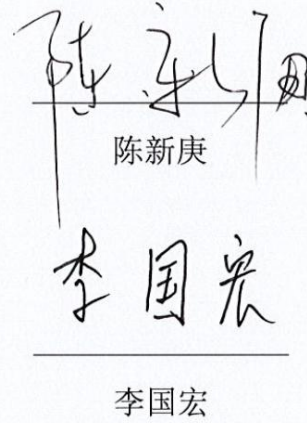 陈新
陈新庚
李国宏
李国宏